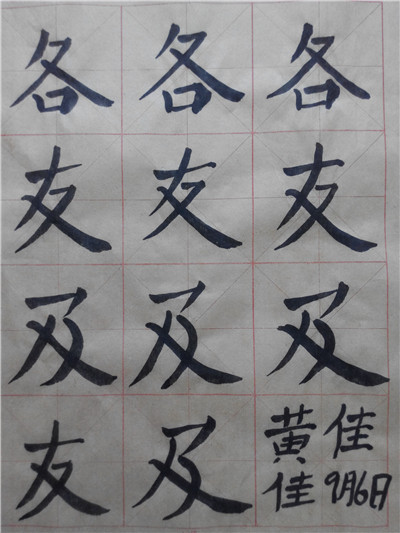 各各各
友友友
及及及
友及
黄佳
佳9月6日